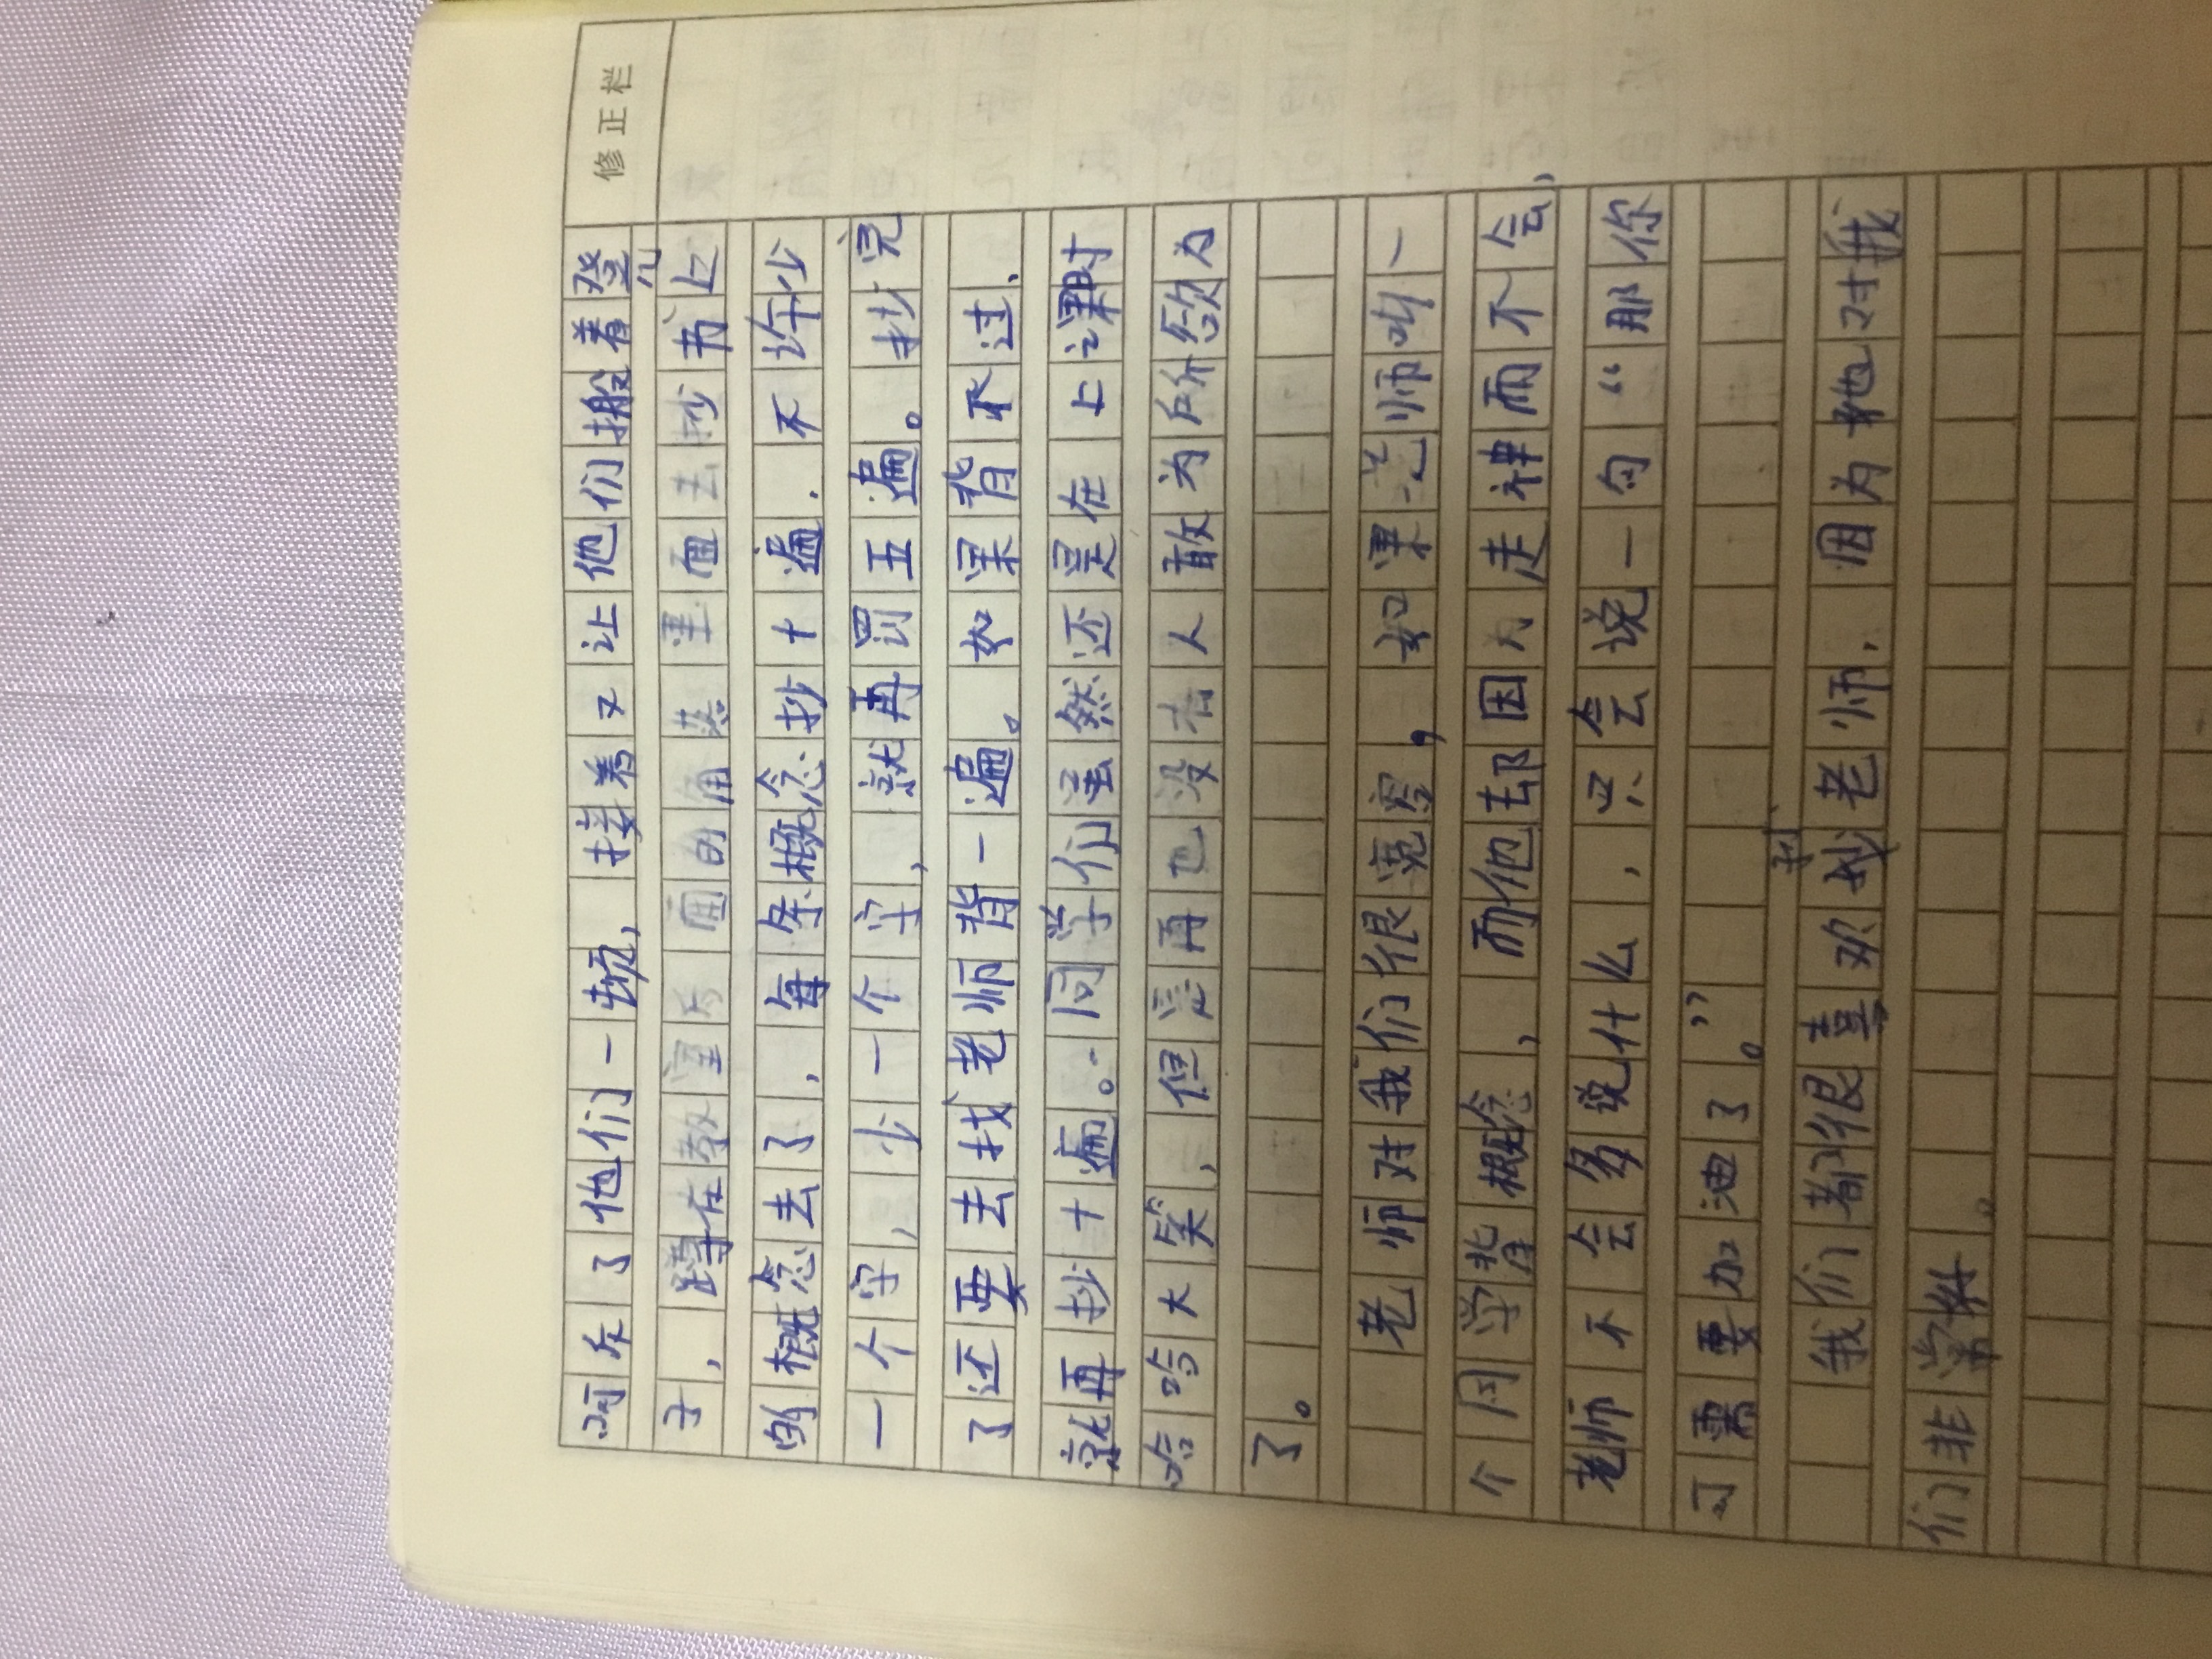 修正栏
斥了他们一顿，接着又让他们搬着凳
子，蹲在教室后面的角落里面去抄书上
的概念去了，每条概念抄十遍.不许少
一个字，少一个字，就再罚五遍。抄完
了还要去找老师背一遍。如果背不过、
就再抄十遍。同学们虽然还是在上课时
哈哈大笑，但是再也没有人敢为所欲为
了。
老师对我们很宽容，如果老师叫一
个同学背概念，而他却因为走神而不会，
老师不会多说什么，只会说一句“那你
可需要加油了。”
我们都很喜欢刘老师.因为他对我
们非常好。